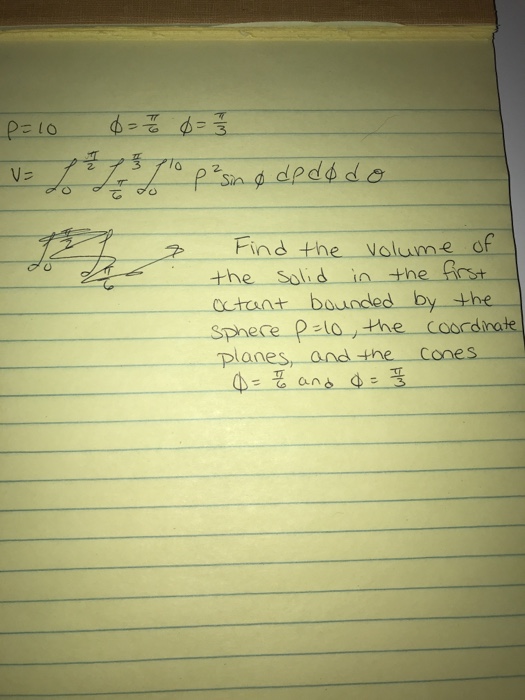 ρ=10 ϕ=π/6 ϕ=π/3
V= ∫₀^(π/2) ∫_(π/6)^(π/3) ∫₀^10 ρ² sin ϕ dρ dϕ dθ
Find the volume of
the solid in the first
octant bounded by the
sphere ρ=10, the coordinate
planes, and the cones
ϕ=π/6 and ϕ=π/3